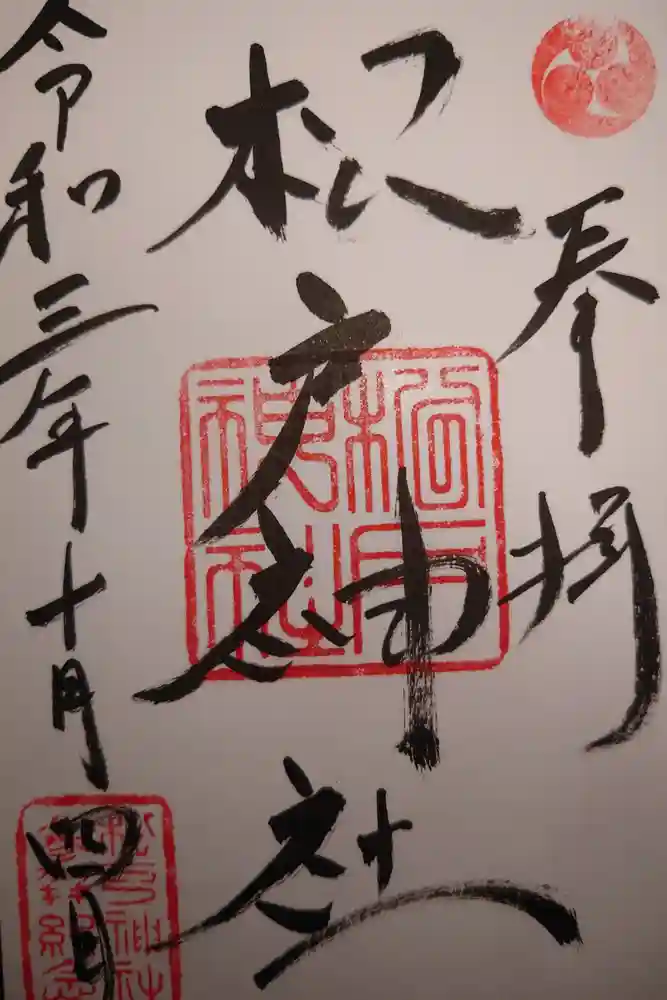 奉拝
松戸神社
令和三年十月四日